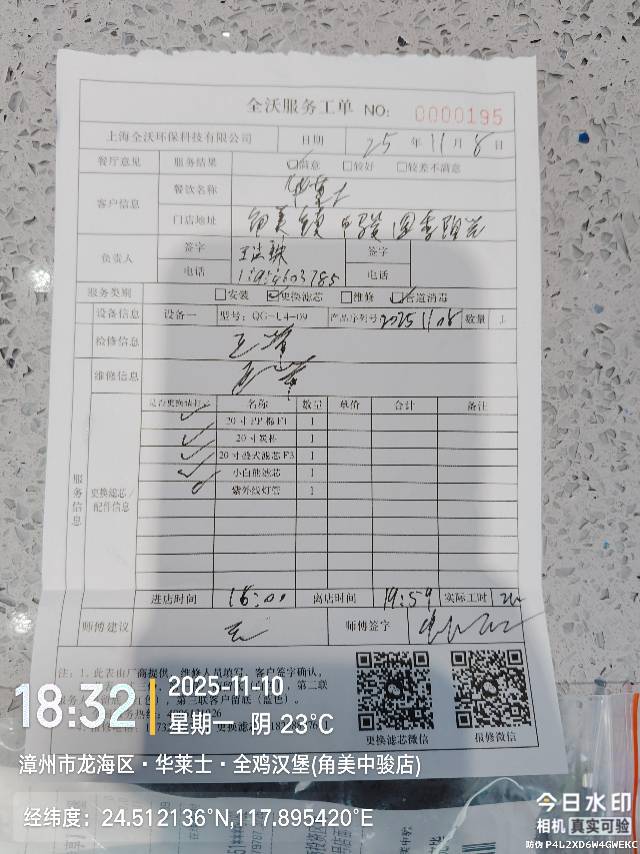 全沃服务工单 NO: 0000195
上海全沃环保科技有限公司 日期 25 年 11 月 8 日
餐厅意见 服务结果 □满意 □较好 □较差不满意
客户信息 餐饮名称 华莱士
门店地址 角美镇中骏四季阳光
负责人 签字 签字
电话 电话
服务类别 □安装 ☑更换滤芯 □维修 ☑管道消毒
设备信息 设备一 型号: QG-L4-09 产品序列号 20251108 数量 1
检修信息 正常
维修信息 正常
服务信息 更换滤芯/配件信息
是否更换请打√ 名称 数量 单价 合计 备注
✓ 20寸PP棉F1 1
✓ 20寸炭棒 1
✓ 20寸叠式滤芯F3 1
✓ 小白熊滤芯 1
紫外线灯管 1
进店时间 18:00 离店时间 19:59 实际工时 2h
师傅建议 无 师傅签字
注: 1、此表由厂商提供、维修人员填写、客户签字确认。
更换滤芯微信 报修微信
18:32
2025-11-10
星期一 阴 23°C
漳州市龙海区·华莱士·全鸡汉堡(角美中骏店)
经纬度: 24.512136°N,117.895420°E
今日水印
相机 真实可验
防伪 P4L2XD6W4GWEKC